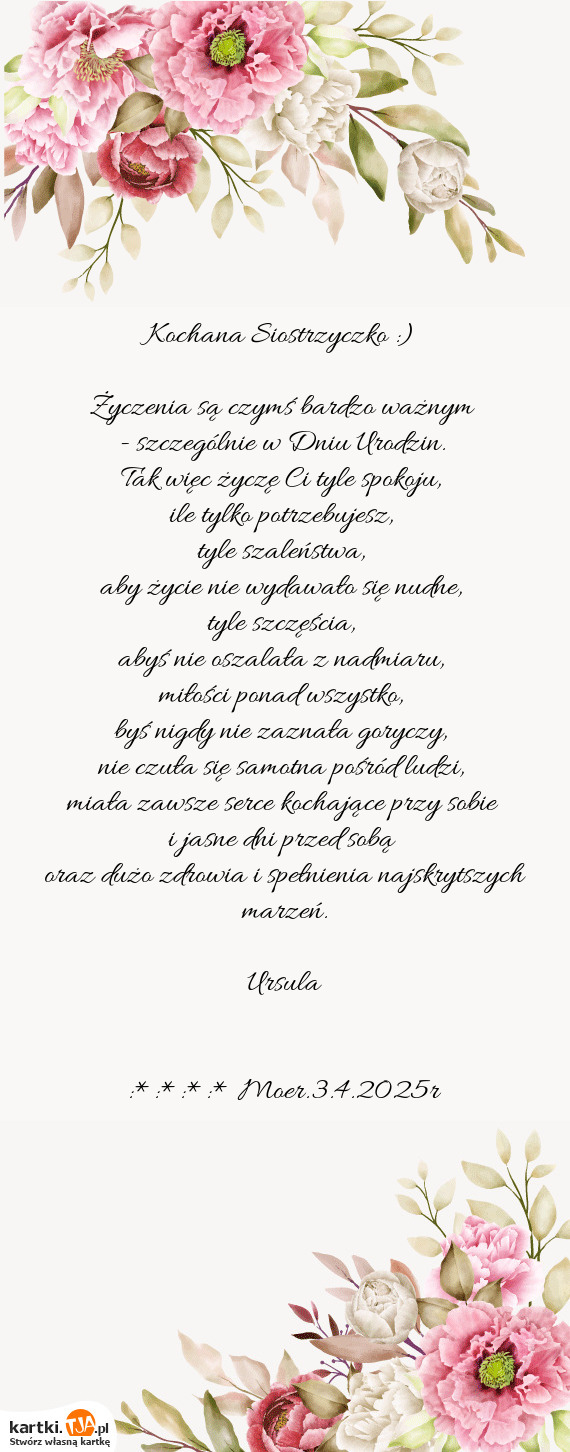 Kochana Siostrzyczko :)
Życzenia są czymś bardzo ważnym
- szczególnie w Dniu Urodzin.
Tak więc życzę Ci tyle spokoju,
ile tylko potrzebujesz,
tyle szaleństwa,
aby życie nie wydawało się nudne,
tyle szczęścia,
abyś nie oszalała z nadmiaru,
miłości ponad wszystko,
byś nigdy nie zaznała goryczy,
nie czuła się samotna pośród ludzi,
miała zawsze serce kochające przy sobie
i jasne dni przed sobą
oraz dużo zdrowia i spełnienia najskrytszych
marzeń.
Ursula
:* :* :* :* Moer.3.4.2025r
kartki.TJA.pl
Stwórz własną kartkę